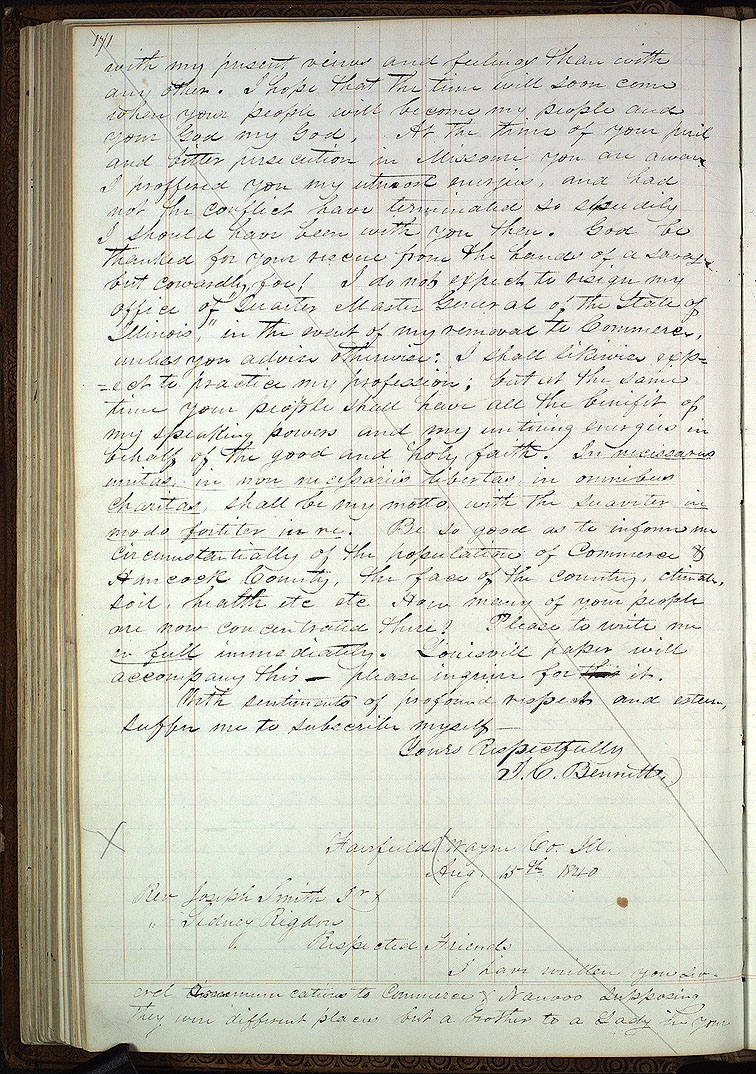 171
with my present views and feelings than with
any other. I hope that the time will soon come
when your people will become my people and
your God my God. At the time of your peril
and bitter persecution in Missouri you are aware
I proffered you my utmost energies, and had
not the conflict have terminated so speedily
I should have been with you then. God be
thanked for your rescue from the hands of a savage
but cowardly foe! I do not expect to resign my
office of "Quarter Master General of the State of
Illinois," in the event of my removal to Commerce,
unless you advise otherwise: I shall likewise exp-
=ect to practice my profession; but at the same
time your people shall have all the benefit of
my speaking powers and my untiring energies in
behalf of the good and holy faith. In necessarus
unitas, in non necessariis libertas, in omnibus
charitas, shall be my motto, with the suaviter in
modo fortiter in re. Be so good as to inform me
circumstantially of the population of Commerce &
Hancock County, the face of the country, climate,
soil, health etc etc How many of your people
are now concentrated there? Please to write me
in full immediately. Louisvill paper will
accompany this — please inquire for this it.
With sentiments of profound respect and esteem,
suffer me to subscribe myself —
Yours Respectfully
J. C. Bennett,
Fairfield Wayne Co. Ill.
Aug. 15th 1840
Rev Joseph Smith Jr &
" Sidney Rigdon
Respected Friends
I have written you sev-
eral communications to Commerce & Nauvoo supposing
they were different places but a brother to a Lady in your